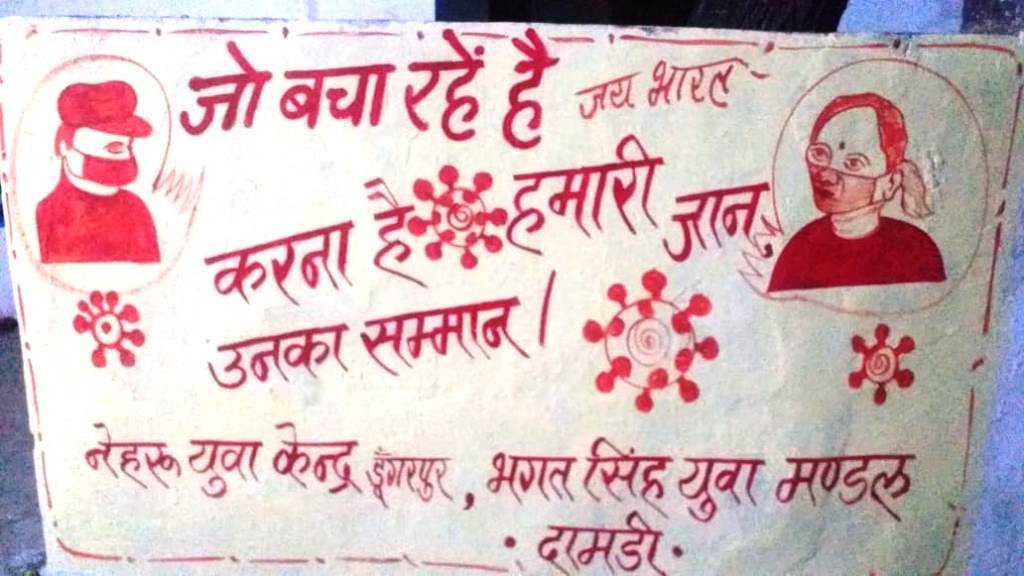 जो बचा रहें है जय भारत
करना है हमारी जान,
उनका सम्मान।
नेहरू युवा केन्द्र डूँगरपुर, भगत सिंह युवा मण्डल
• दामडी •